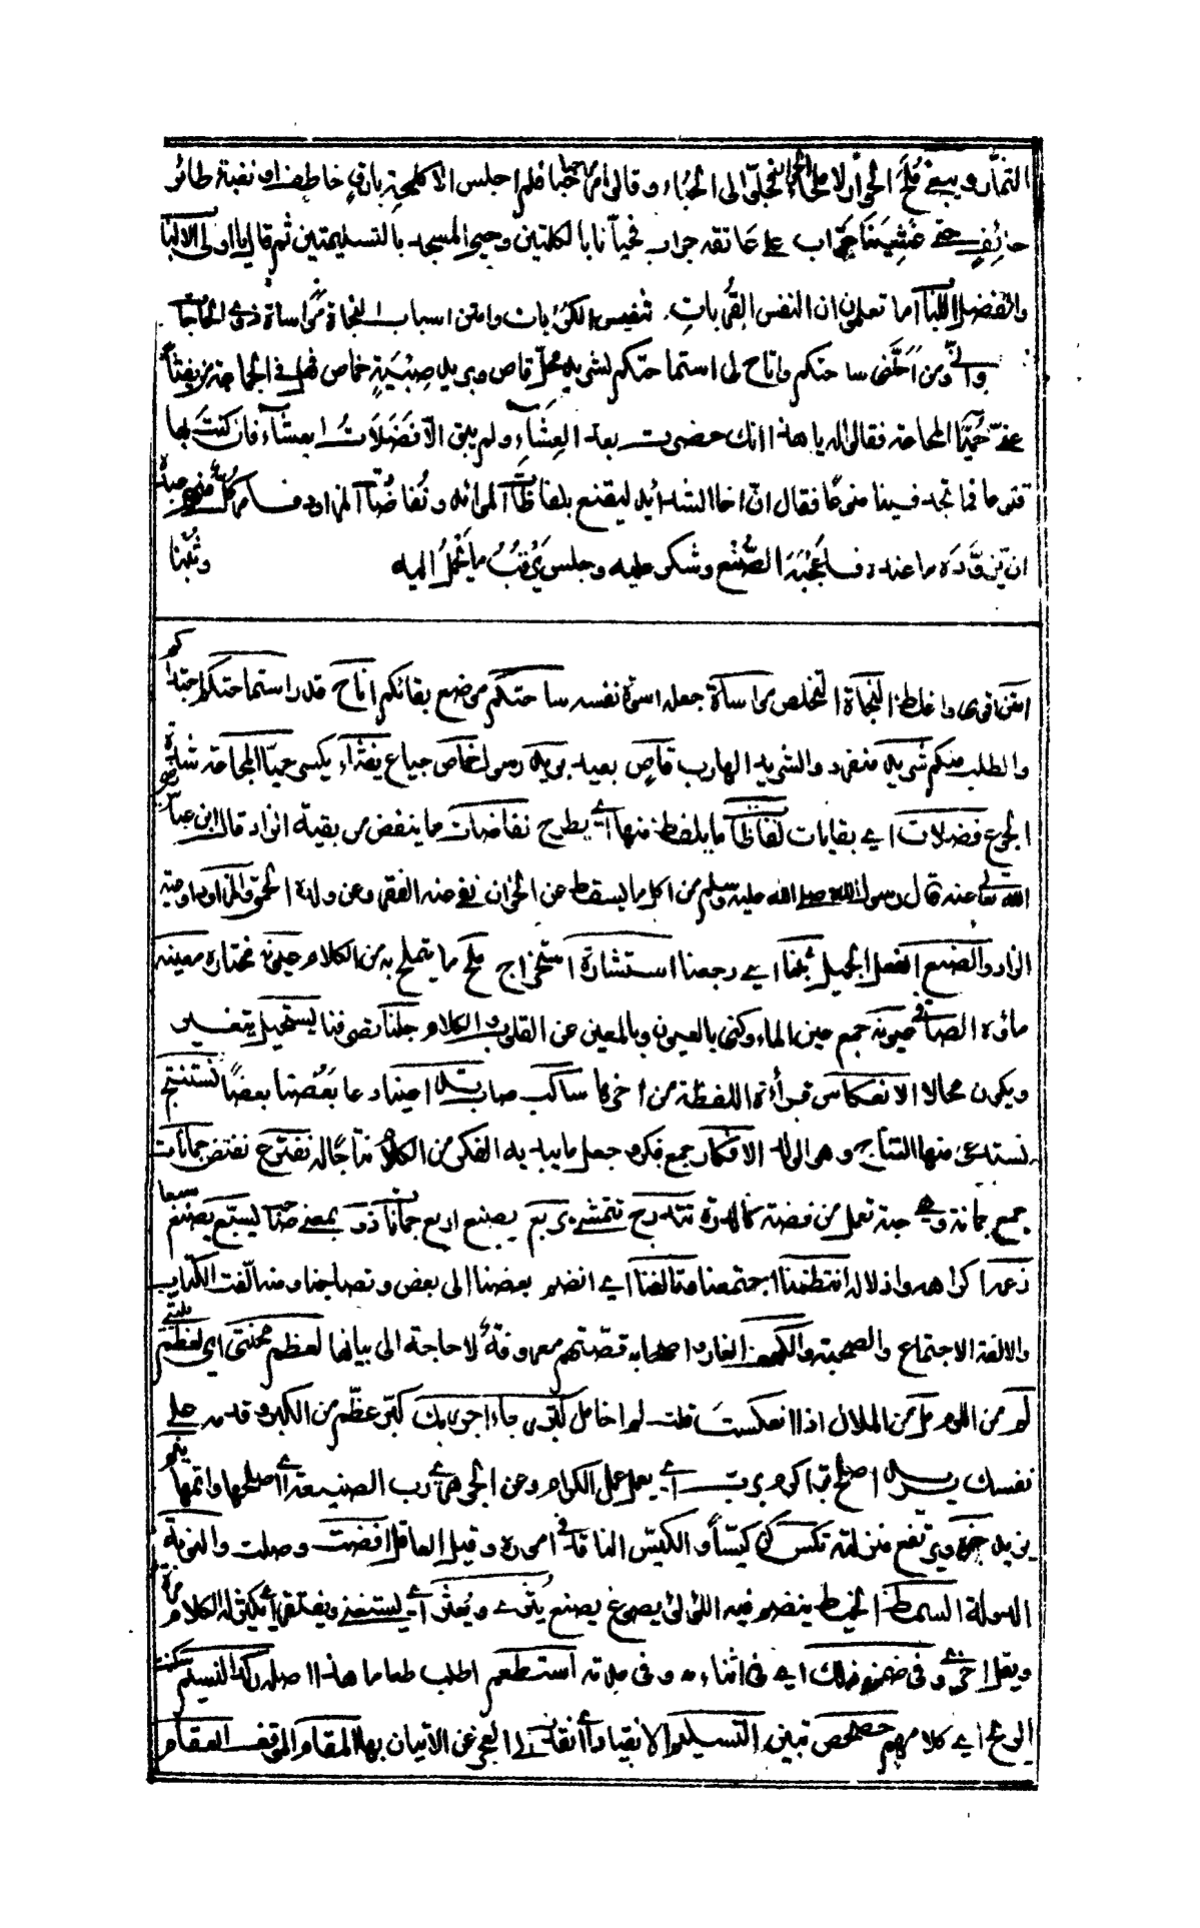 الثمار ويبغي ملح الحوار لا ملحاء الحوار فحلّوا لي الحباء وقالوا مرحبا مرحبا فلم اجلس الا كلمحة بارق خاطف او نغبة طائر
خائف حتى غشينا جوّاب على عاتقه جراب فحيّانا بالكلمتين وحيى المسجد بالتسليمتين ثم قال يا اولى الالباب
والفضل اللباب اما تعلمون ان انفس القربات تنفيس الكربات وامتن اسباب النجاة مواساة ذوي الحاجات
واني ومن احلّني ساحتكم واتاح لي استماحتكم لشريد محل قاص وبريد صبية خماص فهل في الجماعة من يفثأ
عنّي حميّا المجاعة فقالوا له يا هذا انك حضرت بعد العشاء ولم يبق الا فضلات العشاء فان كنت بها
قنوعا فما تجد فينا منوعا فقال ان اخا الشدائد ليقنع بلفاظات الموائد ونفاضات المزاود فامر كل منهم عبده
ان يزوّده ما عنده فاعجبه الصنع وشكر عليه وجلس يرقب ما يحمل اليه وثبنا
امتن اقوى واغلظ النجاة التخلص مواساة جعله اسوة نفسه ساحتكم موضع بقائكم اتاح قدر استماحتكم
والطلب منكم شريد منفرد والشريد الهارب قاص بعيد بريد رسول خماص جياع يفثاء يكسر حميّا المجاعة شدة
الجوع فضلات اي بقايات لفاظات ما يلفظ منها اي يطرح نفاضات ما ينفض من بقية الزاد قال ابن عباس رضي
الله تعالى عنه قال رسول الله صلى الله عليه وسلم من اكل ما يسقط عن الخوان نفي عنه الفقر وعن ولده الحمق والمزاود اوعية
الزاد والصنع الفعل الجميل ثبنا اي رجعنا استشارة استخراج ملح ما يتملح به من الكلام عيونه مختاره معينه
ماؤه الصافي عيونه جمع عين الماء وكنى بالعيون وبالمعين عن القلب والكلام جلنا تصرفنا يستحيل يتغير
ويكون محالا الانعكاس قرأة اللفظة من اخرها ساكب صاب تداعينا دعا بعضنا بعضا نستنتج
نستدعي منها النتاج وهو الولد الافكار جمع فكر وجعل ما يبديه الفكر من الكلام نتاجا له نفترع نفتض جمانات
جمع جمانة وهي حبة تعمل من فضة كالدرة تتدرج تتمشى يربع يصنع اربع جمانات ذو بمعنى صاحب يسبع يصنع سبعا
زعما اكراها واذلالا انتظمنا اجتمعنا متالفا اي انضم بعضنا الى بعض وتصاحبنا ومنه الفت الكتاب
والالفة الاجتماع والصحبة والكهف الغار واصحابه قصتهم معروفة لا حاجة الى بيانها لعظم محنتي اي لعظم بليتي
لم من اللوم مل من الملال اذا انعكست قلت لم اخا مل كبّر رجاء اجر ربك كبّر عظّم من الكبر وقدمه على
نفسك يرب اصلح قبا كرم بر يرب اي يعمل عمل الكرام وعن الجوهري رب الصنيعة اي اصلحها واتمها
يزيد خيره ويرتفع منزلته تكس كن كيّسا والكيّس النافذ في اموره وقيل العاقل افضت وصلت والنوبة
الدولة السمط الخيط ينضم فيه اللؤلؤ يصوغ يصنع يثرى ويغنى اي يستغنى ويفتقر اي يكثر له الكلام مرة
ويقل اخرى وفي ضمن ذلك اي في اثنائه وفي مدته استطعم اطلب طعاما هذا اصله ركد النسيم سكنت
الريح اي كلامهم حصحص تبين التسليم الانقياد اي انقاد الى العجز عن الاتيان بهذا المقام الموقف العقام